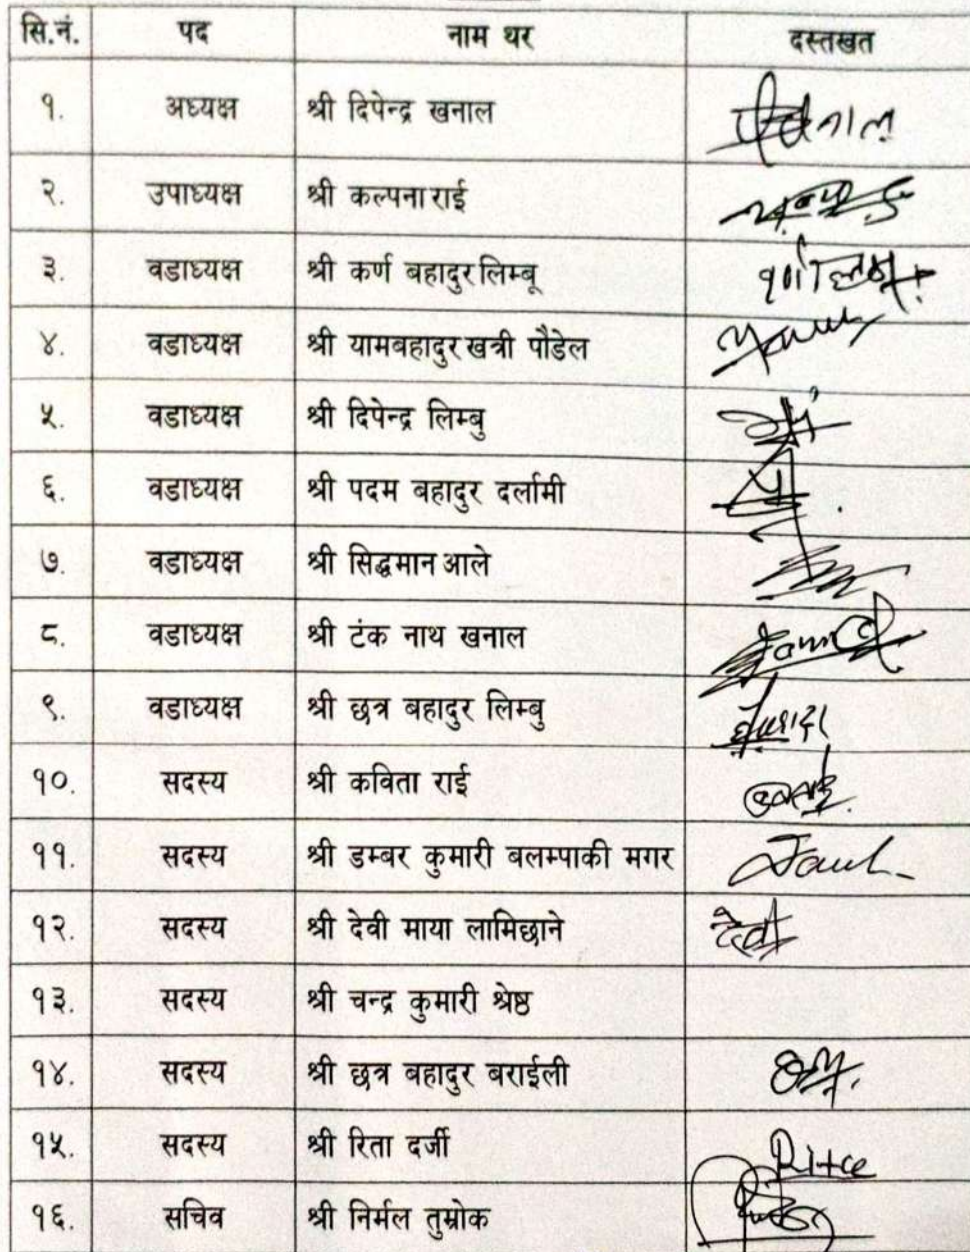 सि.नं. पद नाम थर दस्तखत
१. अध्यक्ष श्री दिपेन्द्र खनाल
२. उपाध्यक्ष श्री कल्पना राई
३. वडाध्यक्ष श्री कर्ण बहादुर लिम्बू
४. वडाध्यक्ष श्री यामबहादुर खत्री पौडेल
५. वडाध्यक्ष श्री दिपेन्द्र लिम्बु
६. वडाध्यक्ष श्री पदम बहादुर दर्लामी
७. वडाध्यक्ष श्री सिद्धमान आले
८. वडाध्यक्ष श्री टंक नाथ खनाल
९. वडाध्यक्ष श्री छत्र बहादुर लिम्बु
१०. सदस्य श्री कविता राई
११. सदस्य श्री डम्बर कुमारी बलम्पाकी मगर
१२. सदस्य श्री देवी माया लामिछाने देवी
१३. सदस्य श्री चन्द्र कुमारी श्रेष्ठ
१४. सदस्य श्री छत्र बहादुर बराईली
१५. सदस्य श्री रिता दर्जी
१६. सचिव श्री निर्मल तुम्रोक